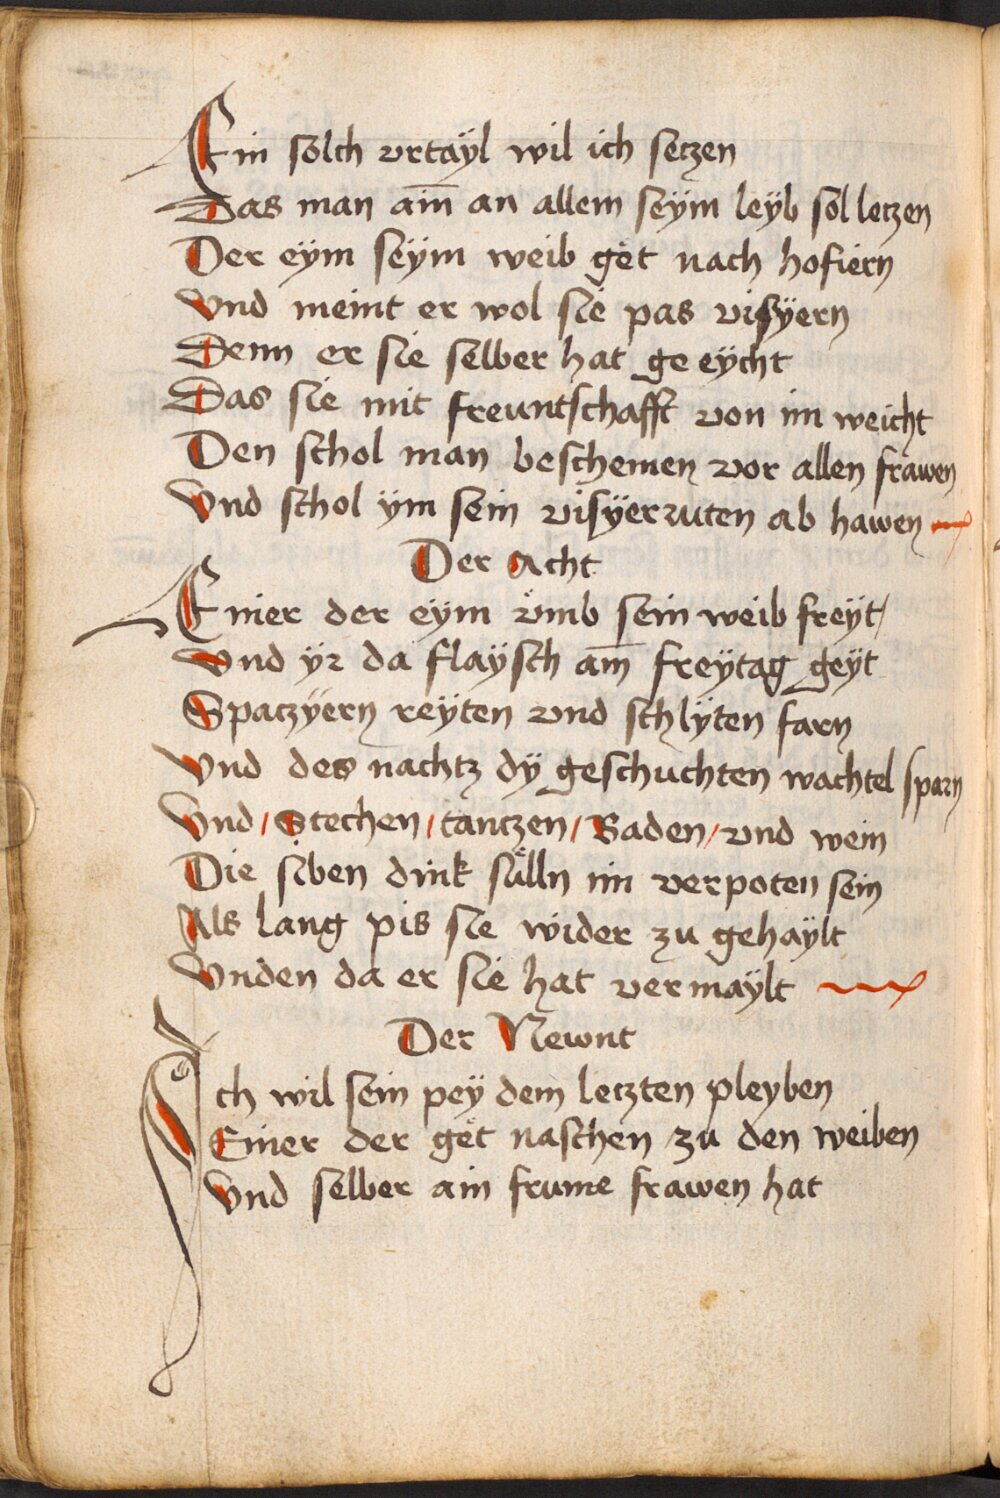 Ein solch vrtäyl wil ich seczen
Das man aim̄ an allem seÿm leÿb sol leczen
Der eÿm seÿm weib gët nach hofiern
Vnd meint er wol sie pas visÿern
Denn er sie selber hat ge eÿcht
Das sie mit freuntschafft von im weicht
Den schol man beschemen vor allen frawen
Vnd schol ÿm sein visÿerruten ab hawen
Der Acht
Einer der eÿm vmb sein weib freÿt/
Vnd ÿr da flaÿsch am̄ freÿtag geÿt
Spaczÿern reÿten vnd schlÿten farn
Vnd des nachtz dÿ geschuchten wachtel sparn
Vnd / Stechen / tanczen / Baden / vnd wein
Die siben dink sülln im verpoten sein
Als lang pis sie wider zu gehaÿlt
Vnden da er sie hat vermaÿlt
Der Newnt
Ich wil sein peÿ dem leczten pleyben
Einer der gët naschen zu den weiben
Vnd selber ain frume frawen hat